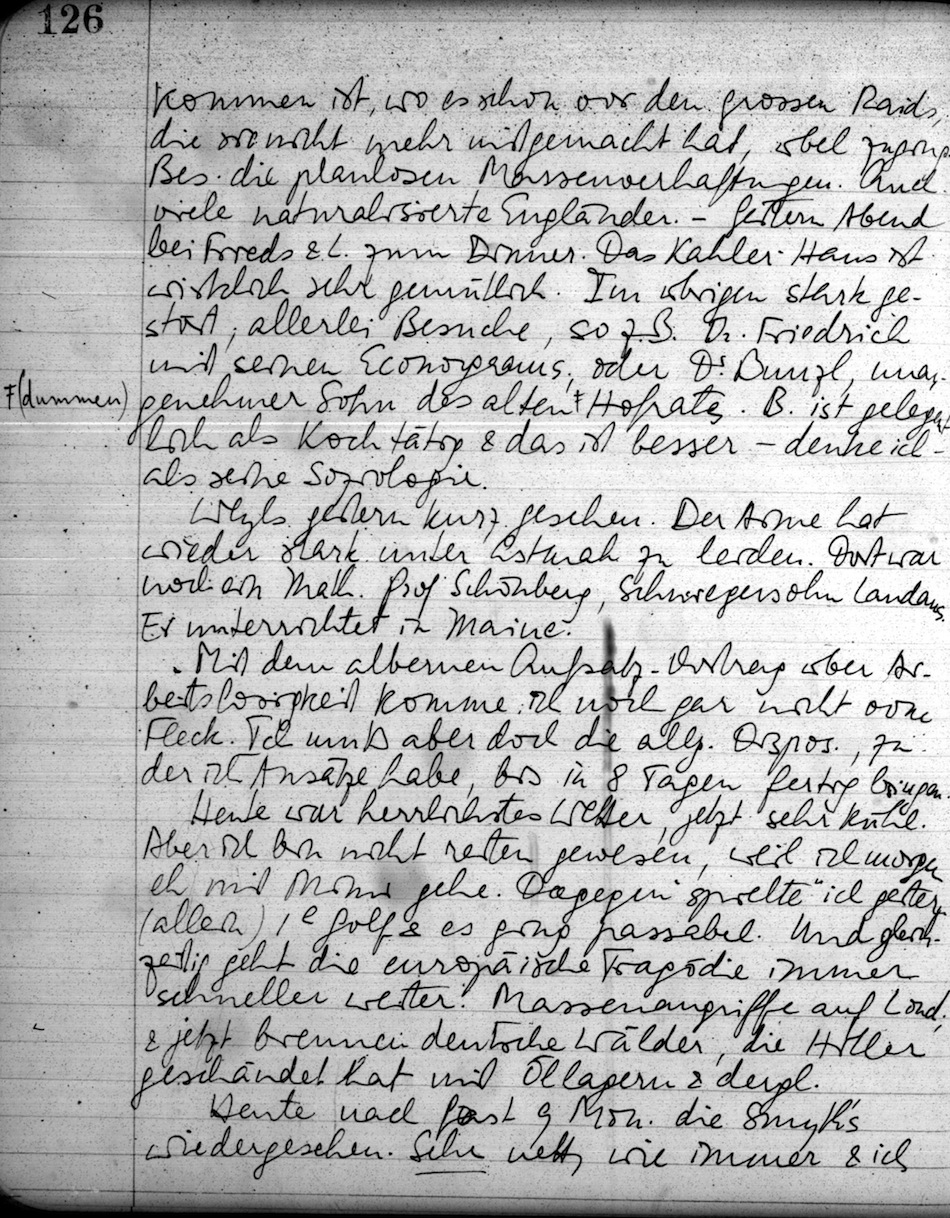 126
kommen ist, wo es schon vor den grossen Raids,
die sie nicht mehr mitgemacht hat, übel zuging.
Bes. die planlosen Massenverhaftungen. Auch
viele naturalisierte Engländer. – Gestern Abend
bei Frieds & L. zum Dinner. Das Kahler-Haus ist
wirklich sehr gemütlich. Im übrigen stark ge-
stört, allerlei Besuche, so z.B. Dr. Friedrich
mit seinen Econograms, oder Dr. Bunzl, unan-
F(dummen) genehmer Sohn des alten F Hofrates. B. ist gelegent-
lich als Koch tätig & das ist besser – denke ich –
als seine Soziologie.
Weyls gestern kurz gesehen. Der Arme hat
wieder stark unter Astmah zu leiden. Dort war
noch ein Math. Prof Schönberg, Schwiegersohn Landaus.
Er unterrichtet in Maine.
Mit dem albernen Aufsatz-Vortrag über Ar-
beitslosigkeit komme ich noch gar nicht vom
Fleck. Ich muss aber doch die allg. Dispos., zu
der ich Ansätze habe, bis in 8 Tagen fertig bringen.
Heute war herrlichstes Wetter, jetzt sehr kühl.
Aber ich bin nicht reiten gewesen, weil ich morgen
eh mit Mimi gehe. Dagegen "spielte" ich gestern
(allein) Golf & es ging passabel. Und gleich-
zeitig geht die europäische Tragödie immer
schneller weiter! Massenangriffe auf Lond,
& jetzt brennen deutsche Wälder, die Hitler
geschändet hat mit Öllagern & dergl.
Heute nach fast 9 Mon. die Smyth's
wiedergesehen. Sehr nett, wie immer & ich